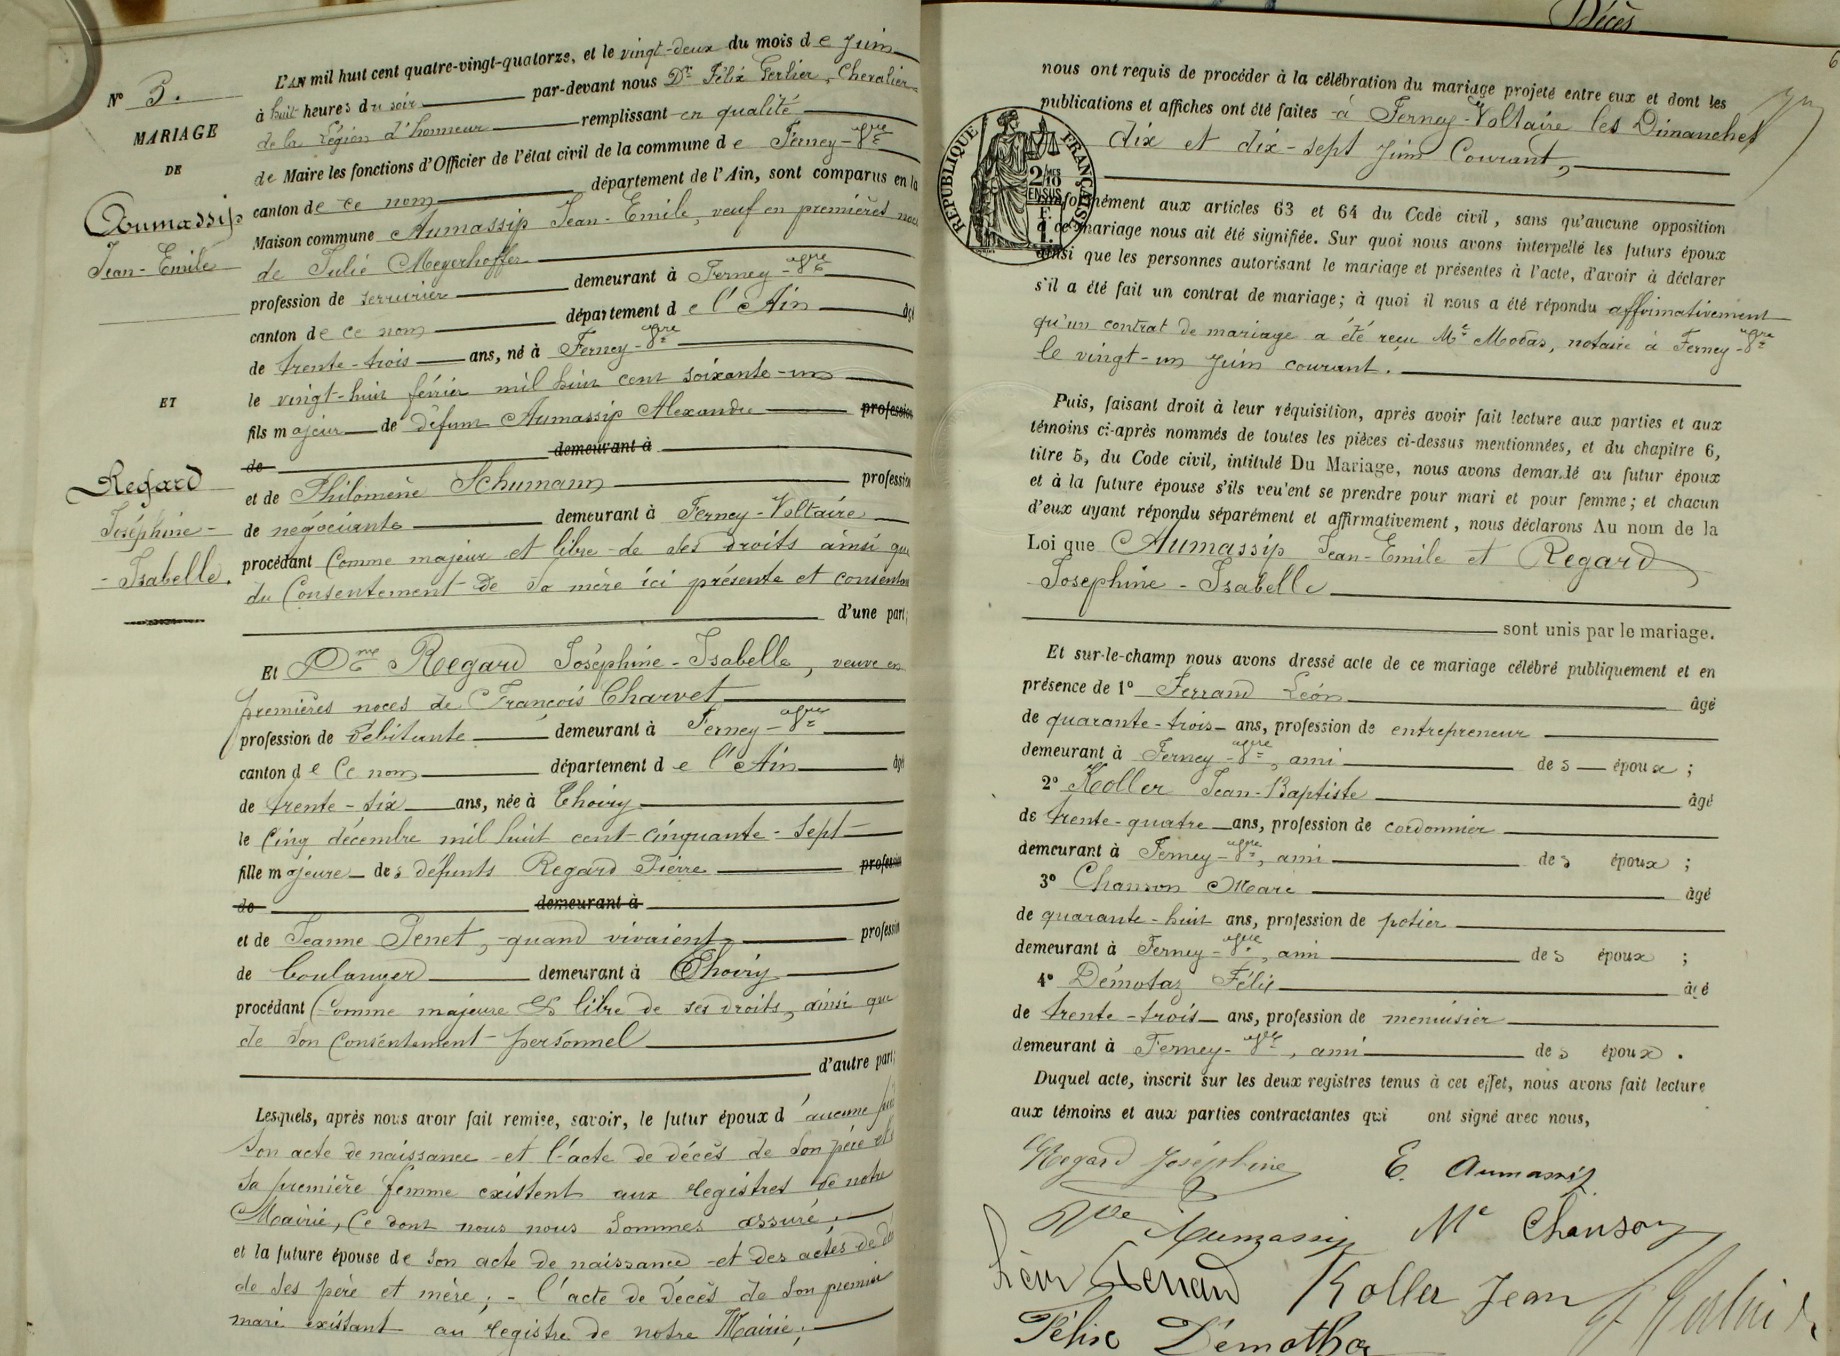 N° 3.
MARIAGE
DE
Aumassip
Jean-Emile
ET
Regard
Joséphine-
-Isabelle.
L'AN mil huit cent quatre-vingt-quatorze, et le vingt-deux du mois de Juin
à huit heures du soir par-devant nous Dr Félix Gerlier, Chevalier
de la Légion d'honneur remplissant en qualité
de Maire les fonctions d'Officier de l'état civil de la commune de Ferney-Vre
canton de ce nom département de l'Ain, sont comparus en la
Maison commune Aumassip Jean-Emile, veuf en premières
de Julie Meyerhoffer
profession de serrurier demeurant à Ferney-Vre
canton de ce nom département de l'Ain âgé
de trente-trois ans, né à Ferney-Vre
le vingt-huit février mil huit cent soixante-un
fils majeur de défunt Aumassip Alexandre profession
de demeurant à
et de Philomène Schumann profession
de négociante demeurant à Ferney-Voltaire
procédant comme majeur et libre de ses droits ainsi que
du Consentement de sa mère ici présente et
d'une part;
Et Dme Regard Joséphine-Isabelle, veuve en
premières noces de François Charvet
profession de débitante demeurant à Ferney-Vre
canton de ce nom département de l'Ain âgé
de trente-six ans, née à Thoiry
le cinq décembre mil huit cent cinquante-sept
fille majeure des défunts Regard Pierre profession
de demeurant à
et de Jeanne Penet, quand vivaient, profession
de boulanger demeurant à Thoiry
procédant comme majeure et libre de ses droits, ainsi que
de son consentement personnel
d'autre part;
Lesquels, après nous avoir fait remise, savoir, le futur époux d'aucune
son acte de naissance et l'acte de décès de son père et
sa première femme existent aux registres de notre
Mairie, ce dont nous nous sommes assuré.
et la future épouse de son acte de naissance et des actes de
de ses père et mère; - l'acte de décès de son premier
mari existant au registre de notre Mairie;
Décès
6
nous ont requis de procéder à la célébration du mariage projeté entre eux et dont les
publications et affiches ont été faites à Ferney-Voltaire les Dimanches
dix et dix-sept Juin Courant,
RÉPUBLIQUE FRANÇAISE
2/10mes
EN SUS
conformément aux articles 63 et 64 du Code civil, sans qu'aucune opposition
à ce mariage nous ait été signifiée. Sur quoi nous avons interpellé les futurs époux
ainsi que les personnes autorisant le mariage et présentes à l'acte, d'avoir à déclarer
s'il a été fait un contrat de mariage; à quoi il nous a été répondu affirmativement
qu'un contrat de mariage a été reçu Me Modas, notaire à Ferney-Vre
le vingt-un Juin courant.
Puis, faisant droit à leur réquisition, après avoir fait lecture aux parties et aux
témoins ci-après nommés de toutes les pièces ci-dessus mentionnées, et du chapitre 6,
titre 5, du Code civil, intitulé Du Mariage, nous avons demandé au futur époux
et à la future épouse s'ils veulent se prendre pour mari et pour femme; et chacun
d'eux ayant répondu séparément et affirmativement, nous déclarons Au nom de la
Loi que Aumassip Jean-Emile et Regard
Josephine-Isabelle
sont unis par le mariage.
Et sur-le-champ nous avons dressé acte de ce mariage célébré publiquement et en
présence de 1° Ferrand Léon âgé
de quarante-trois ans, profession de entrepreneur
demeurant à Ferney-Vre, ami des époux;
2° Koller Jean-Baptiste âgé
de trente-quatre ans, profession de cordonnier
demeurant à Ferney-Vre, ami des époux;
3° Chanson Marc âgé
de quarante-huit ans, profession de potier
demeurant à Ferney-Vre, ami des époux;
4° Démotaz Félix âgé
de trente-trois ans, profession de menuisier
demeurant à Ferney-Vre, ami des époux.
Duquel acte, inscrit sur les deux registres tenus à cet effet, nous avons fait lecture
aux témoins et aux parties contractantes qui ont signé avec nous,
Regard Joséphine E. Aumassip
Vve Aumassip Mc Chanson
Léon Ferrand Koller Jean
Félix Démothaz